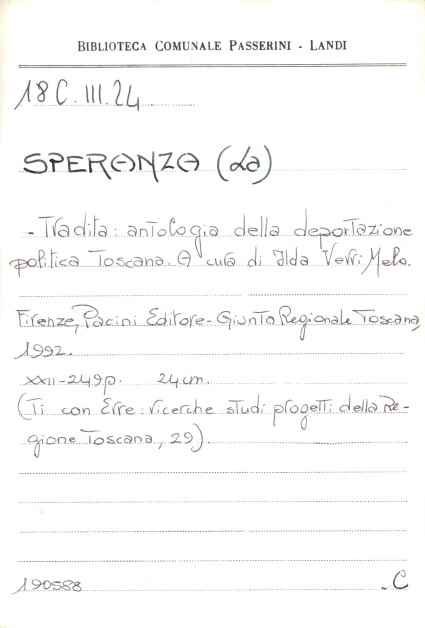 BIBLIOTECA COMUNALE PASSERINI - LANDI
18 C. III. 24
SPERANZA (La)
- Tradita: antologia della deportazione
politica Toscana. A cura di Ilda Verri Melo.
Firenze, Pacini Editore - Giunta Regionale Toscana,
1992.
XXII-249p. 24cm.
(Ti con Erre: ricerche studi progetti della Re-
gione Toscana, 29).
190588 - C